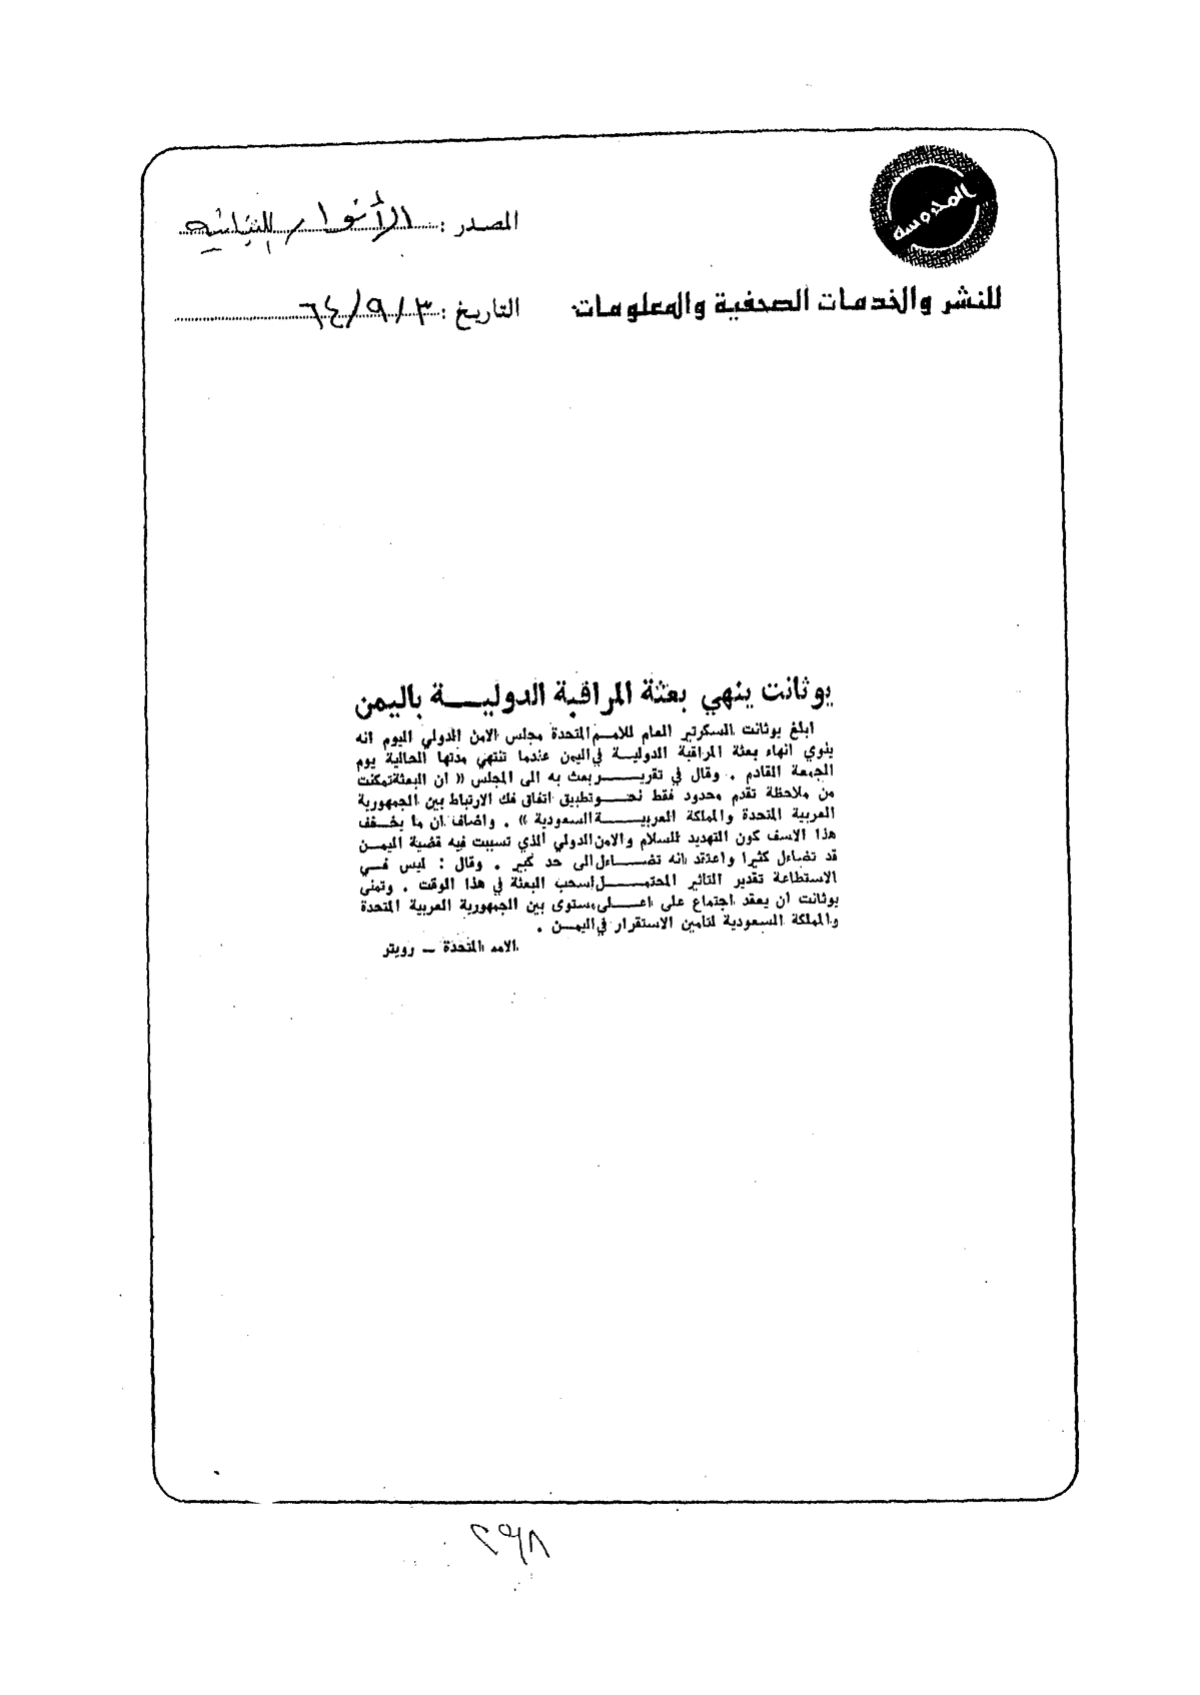 المحروسة
المصدر : الأنوار اللبنانيه
للنشر والخدمات الصحفية والمعلومات
التاريخ : ٦٤/٩/٣
يوثانت ينهي بعثة المراقبة الدوليـــة باليمن
ابلغ يوثانت السكرتير العام للامم المتحدة مجلس الامن الدولي اليوم انه
ينوي انهاء بعثة المراقبة الدوليـــة في اليمن عندما تنتهي مدتها الحالية يوم
الجمعة القادم . وقال في تقريـــر بعث به الى المجلس « ان البعثة تمكنت
من ملاحظة تقدم محدود فقط نحـــو تطبيق اتفاق فك الارتباط بين الجمهورية
العربية المتحدة والمملكة العربيـــة السعودية » . واضاف ان ما يخـفف
هذا الاسف كون التهديد للسلام والامن الدولي الذي تسببت فيه قضية اليمـن
قد تضاءل كثيرا واعتقد انه تضـــاءل الى حد كبير . وقال : ليس فــي
الاستطاعة تقدير التاثير المحتمـــل لسحب البعثة في هذا الوقت . وتمنى
يوثانت ان يعقد اجتماع على اعـــلى مستوى بين الجمهورية العربية المتحدة
والمملكة السعودية لتامين الاستقرار في اليمـــن .
الامم المتحدة ــ رويتر